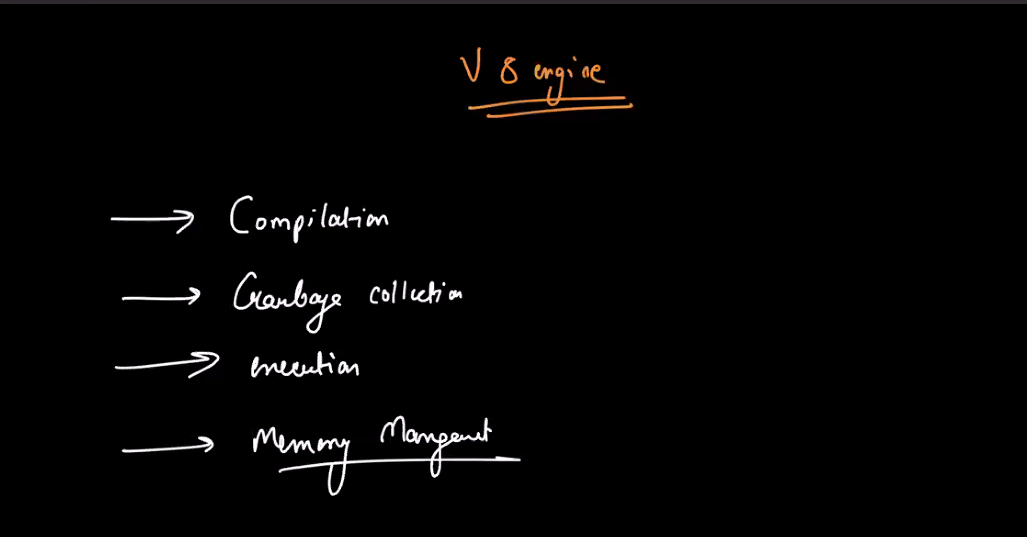 V 8 engine
Compilation
Garbage collection
execution
Memory Mangemet